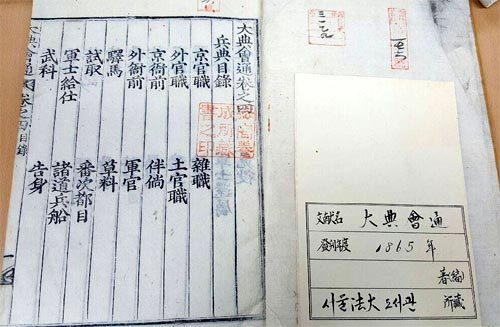 大典會通卷之四
兵典目錄
京官職 雜職
外官職 土官職
京衙前 伴倘
外衙前 軍官
驛馬 草料
試取 番次都目
軍士給仕 諸道兵船
武科 告身
大典會通 卷之四 目錄
文献名 大典會通
發行年度 1865年
著(編)
서울法大도서관 所藏